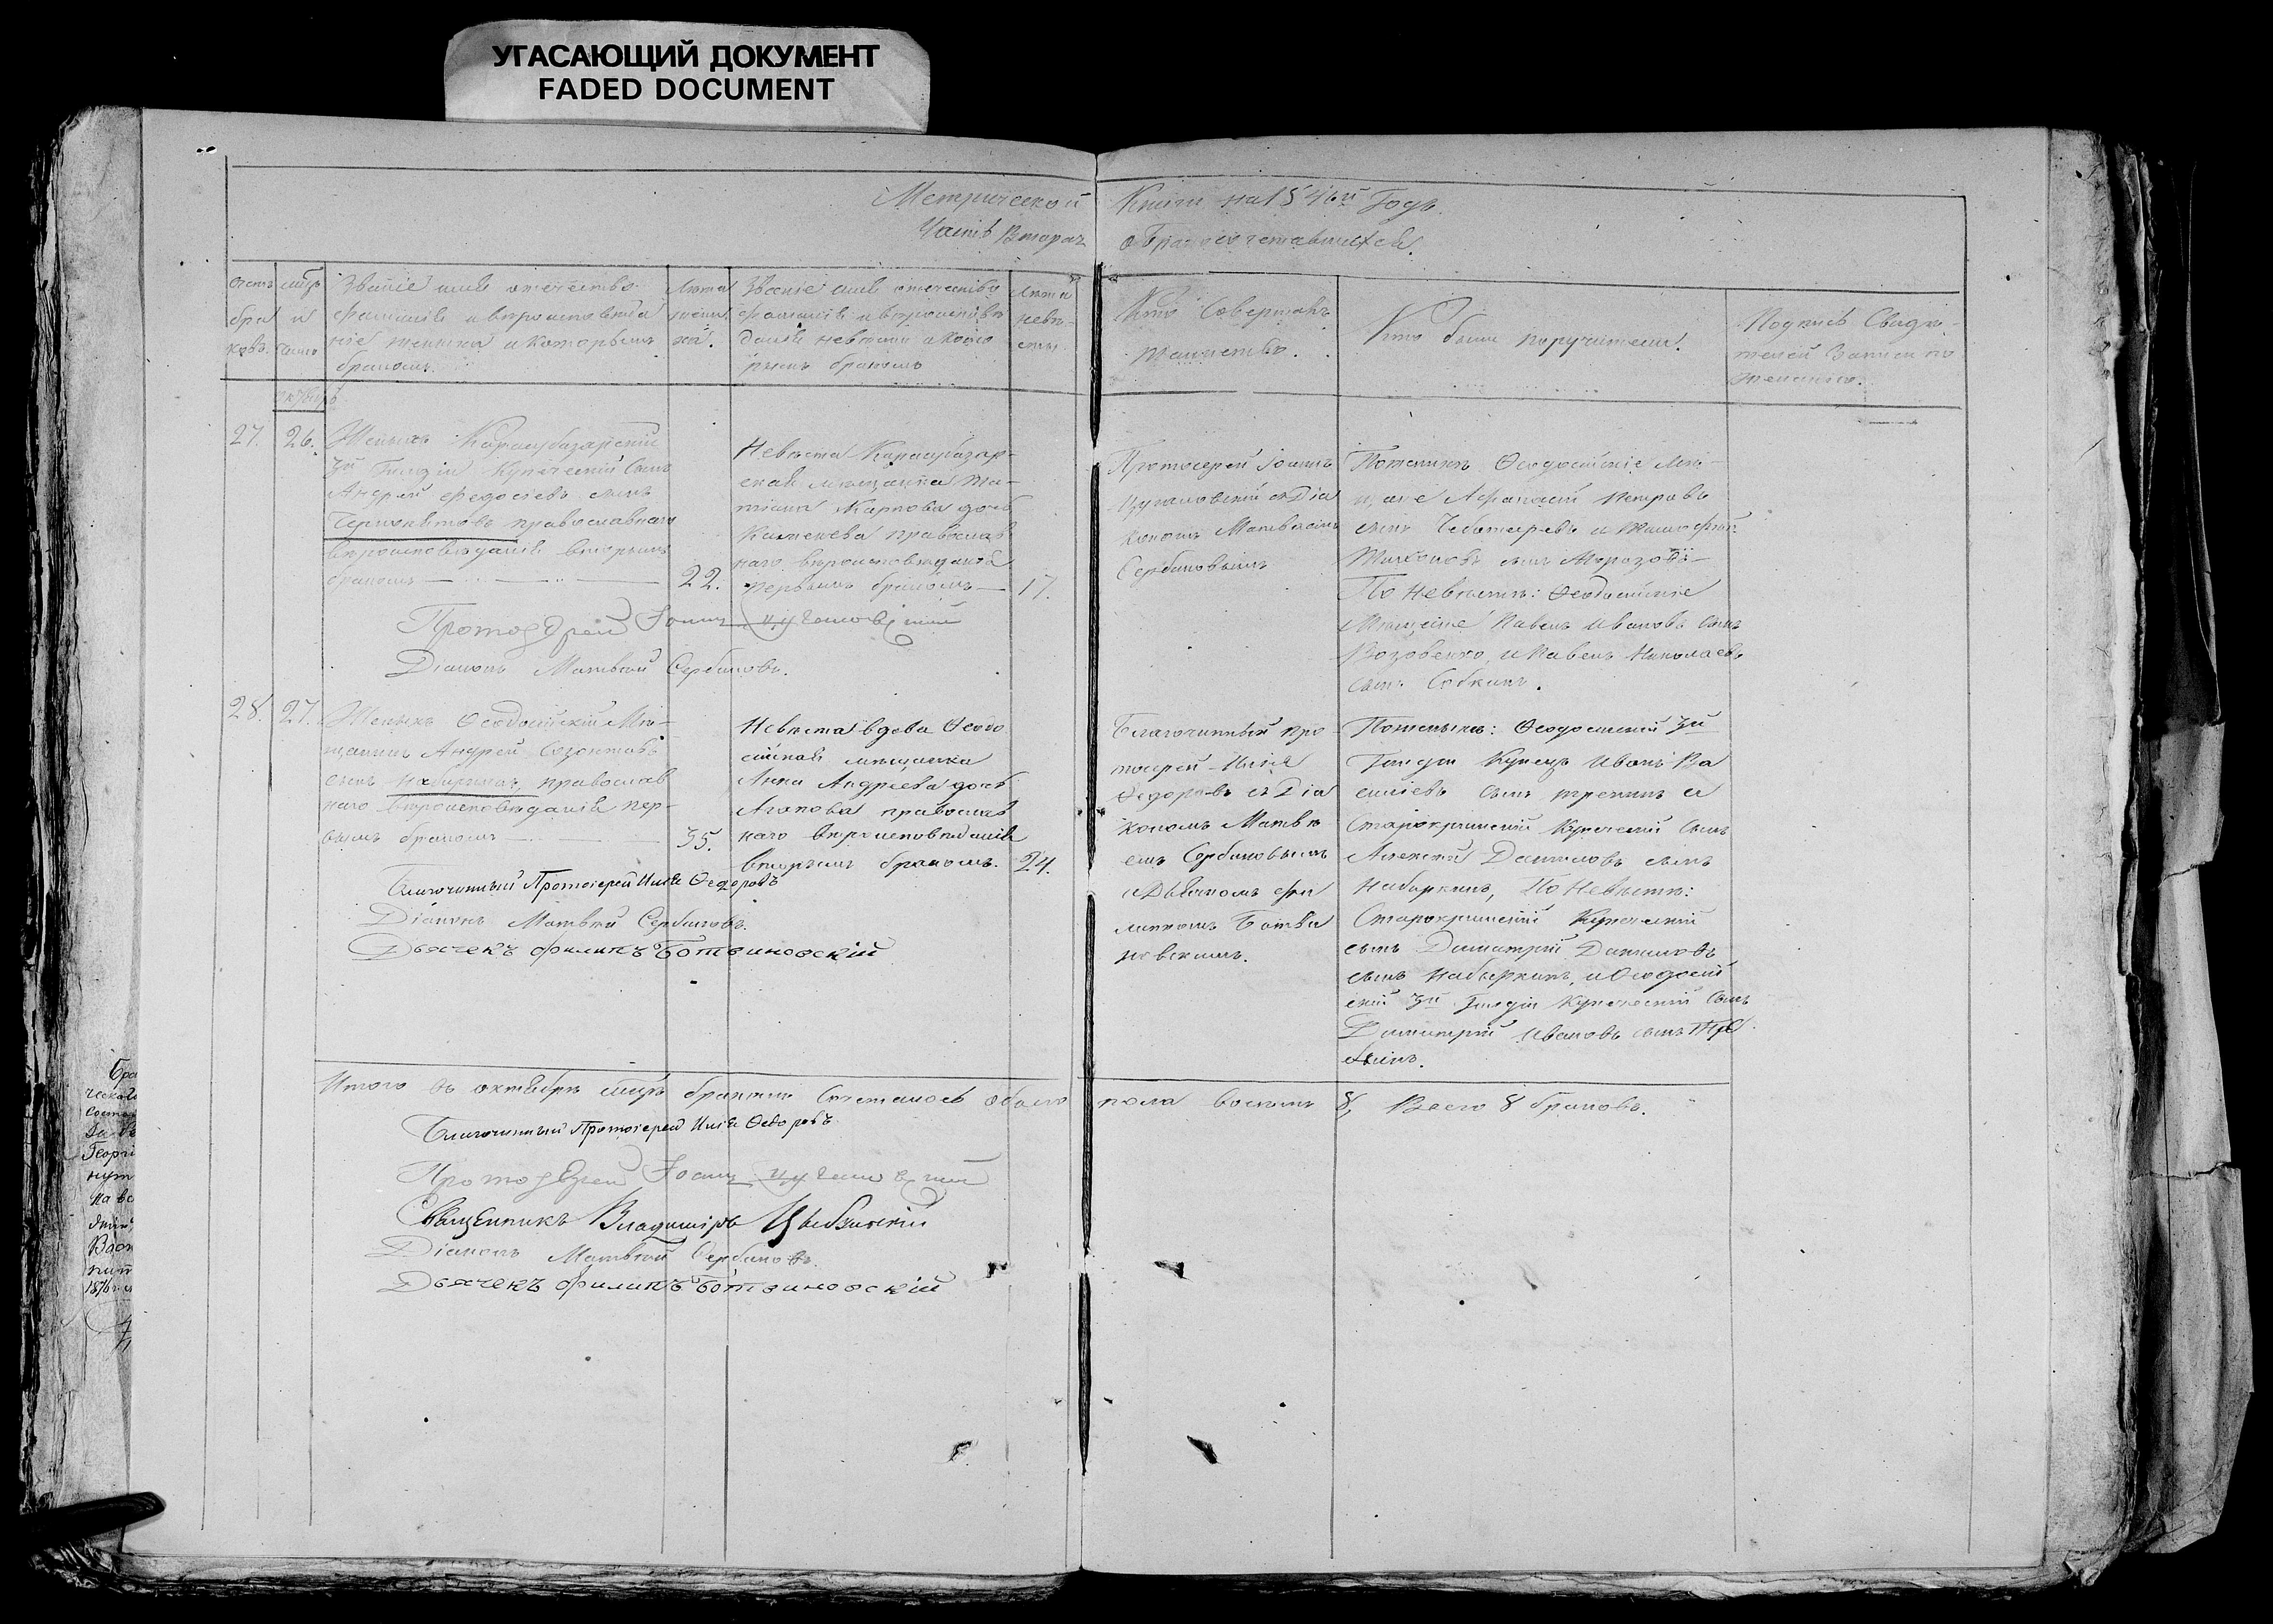 УГАСАЮЩИЙ ДОКУМЕНТ
FADED DOCUMENT
Метрической Книги на 1846й Годъ.
Часть Вторая о бракосочетавшихся.
Счетъ
бра
ковъ.
мцъ
и
число
Званіе имя отечество
фамилія и вѣроисповѣда
ніе жениха и которымъ
бракомъ
Лѣта
жени
ха.
Званіе имя отечество
фамилія и вѣроисповѣ
даніе невѣсты и кото
рымъ бракомъ
Лѣта
невѣ
сты
Кто Совершалъ
таинство.
Кто были поручители.
Подпись Свидѣ
телей Записи по
желанію.
октябрь
27.
26.
Женихъ Карасубазарскій
3й Гильдіи Купеческій Сынъ
Андрей Федосіевъ сынъ
православнаго
вѣроисповѣданія вторымъ
бракомъ
22.
Невѣста Карасубазар-
ская мѣщанка Та-
тіана Карпова дочь
православ
наго вѣроисповѣданія
первымъ бракомъ
17.
Протоіерей Іоаннъ
съ Діа
кономъ Матвѣемъ
Сербиновымъ
По женихѣ Ѳеодосійскіе мѣ-
щане Афанасій Петровъ
сынъ Чеботаревъ и Тимофей
Тихоновъ сынъ Морозовъ
По Невѣстѣ: Ѳеодосійскіе
Мѣщане Павелъ Ивановъ сынъ
и Павелъ Николаевъ
сынъ Собкинъ.
Протоіерей Іоаннъ
Діаконъ Матвѣй Сербиновъ.
28.
27.
Женихъ Ѳеодосійскій Мѣ-
щанинъ Андрей Созонтовъ
сынъ православ
наго вѣроисповѣданія пер-
вымъ бракомъ
35.
Невѣста вдова Ѳеодо
сійская мѣщанка
Анна Андреева дочь
Агапова православ
наго вѣроисповѣданія
вторымъ бракомъ.
24.
Благочинный про
тоіерей Илія
Ѳедоровъ съ Діа
кономъ Матвѣ
емъ Сербиновымъ
и Дьячкомъ Фи
липпомъ Ботви
новскимъ.
По женихѣ: Ѳеодосійскій 3й
Гильдіи Купецъ Иванъ Ва
силіевъ сынъ и
Старокрымскій Купеческій Сынъ
Алексѣй Даниловъ сынъ
Набыркинъ, По Невѣстѣ:
Старокрымскій Купеческій
сынъ Димитрій Даниловъ
сынъ Набыркинъ, и Ѳеодосій
скій 3й Гильдіи Купеческій Сынъ
Димитрій Ивановъ сынъ
Благочинный Протоіерей Илія Ѳедоровъ
Діаконъ Матвѣй Сербиновъ.
Дьячекъ Филипъ Ботвиновскій
Итого въ октябрѣ мцѣ бракомъ Сочеталось обоего пола восемь 8, Всего 8 браковъ.
Благочинный Протоіерей Илія Ѳедоровъ
Протоіерей Іоаннъ
Священникъ Владиміръ
Діаконъ Матвѣй Сербиновъ.
Дьячекъ Филипъ Ботвиновскій